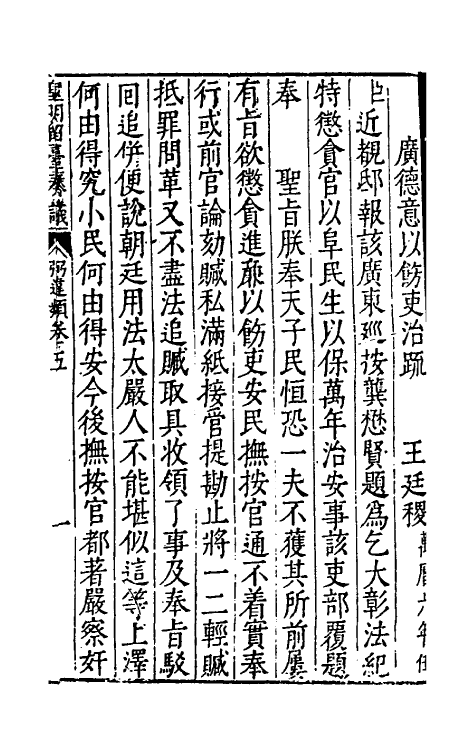 廣德意以飭吏治疏 王廷稷萬曆六年任
近覩邸報該廣東廵按龔懋賢題爲乞大彰法紀
特懲貪官以阜民生以保萬年治安事該吏部覆題
奉 聖旨朕奉天子民恒恐一夫不獲其所前屢
有旨欲懲貪進廉以飭吏安民撫按官通不着實奉
行或前官論劾贓私滿紙接管提勘止將一二輕贓
抵罪問革又不盡法追贓取具收領了事及奉旨駁
回追併便說朝廷用法太嚴人不能堪似這等上澤
何由得究小民何由得安今後撫按官都著嚴察奸
皇明留臺奏議 弼違類卷五 一